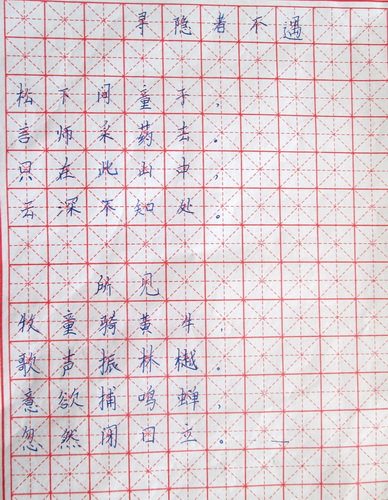 寻隐者不遇
松下问童子，
言师采药去。
只在此山中，
云深不知处。
所见
牧童骑黄牛，
歌声振林樾。
意欲捕鸣蝉，
忽然闭口立。